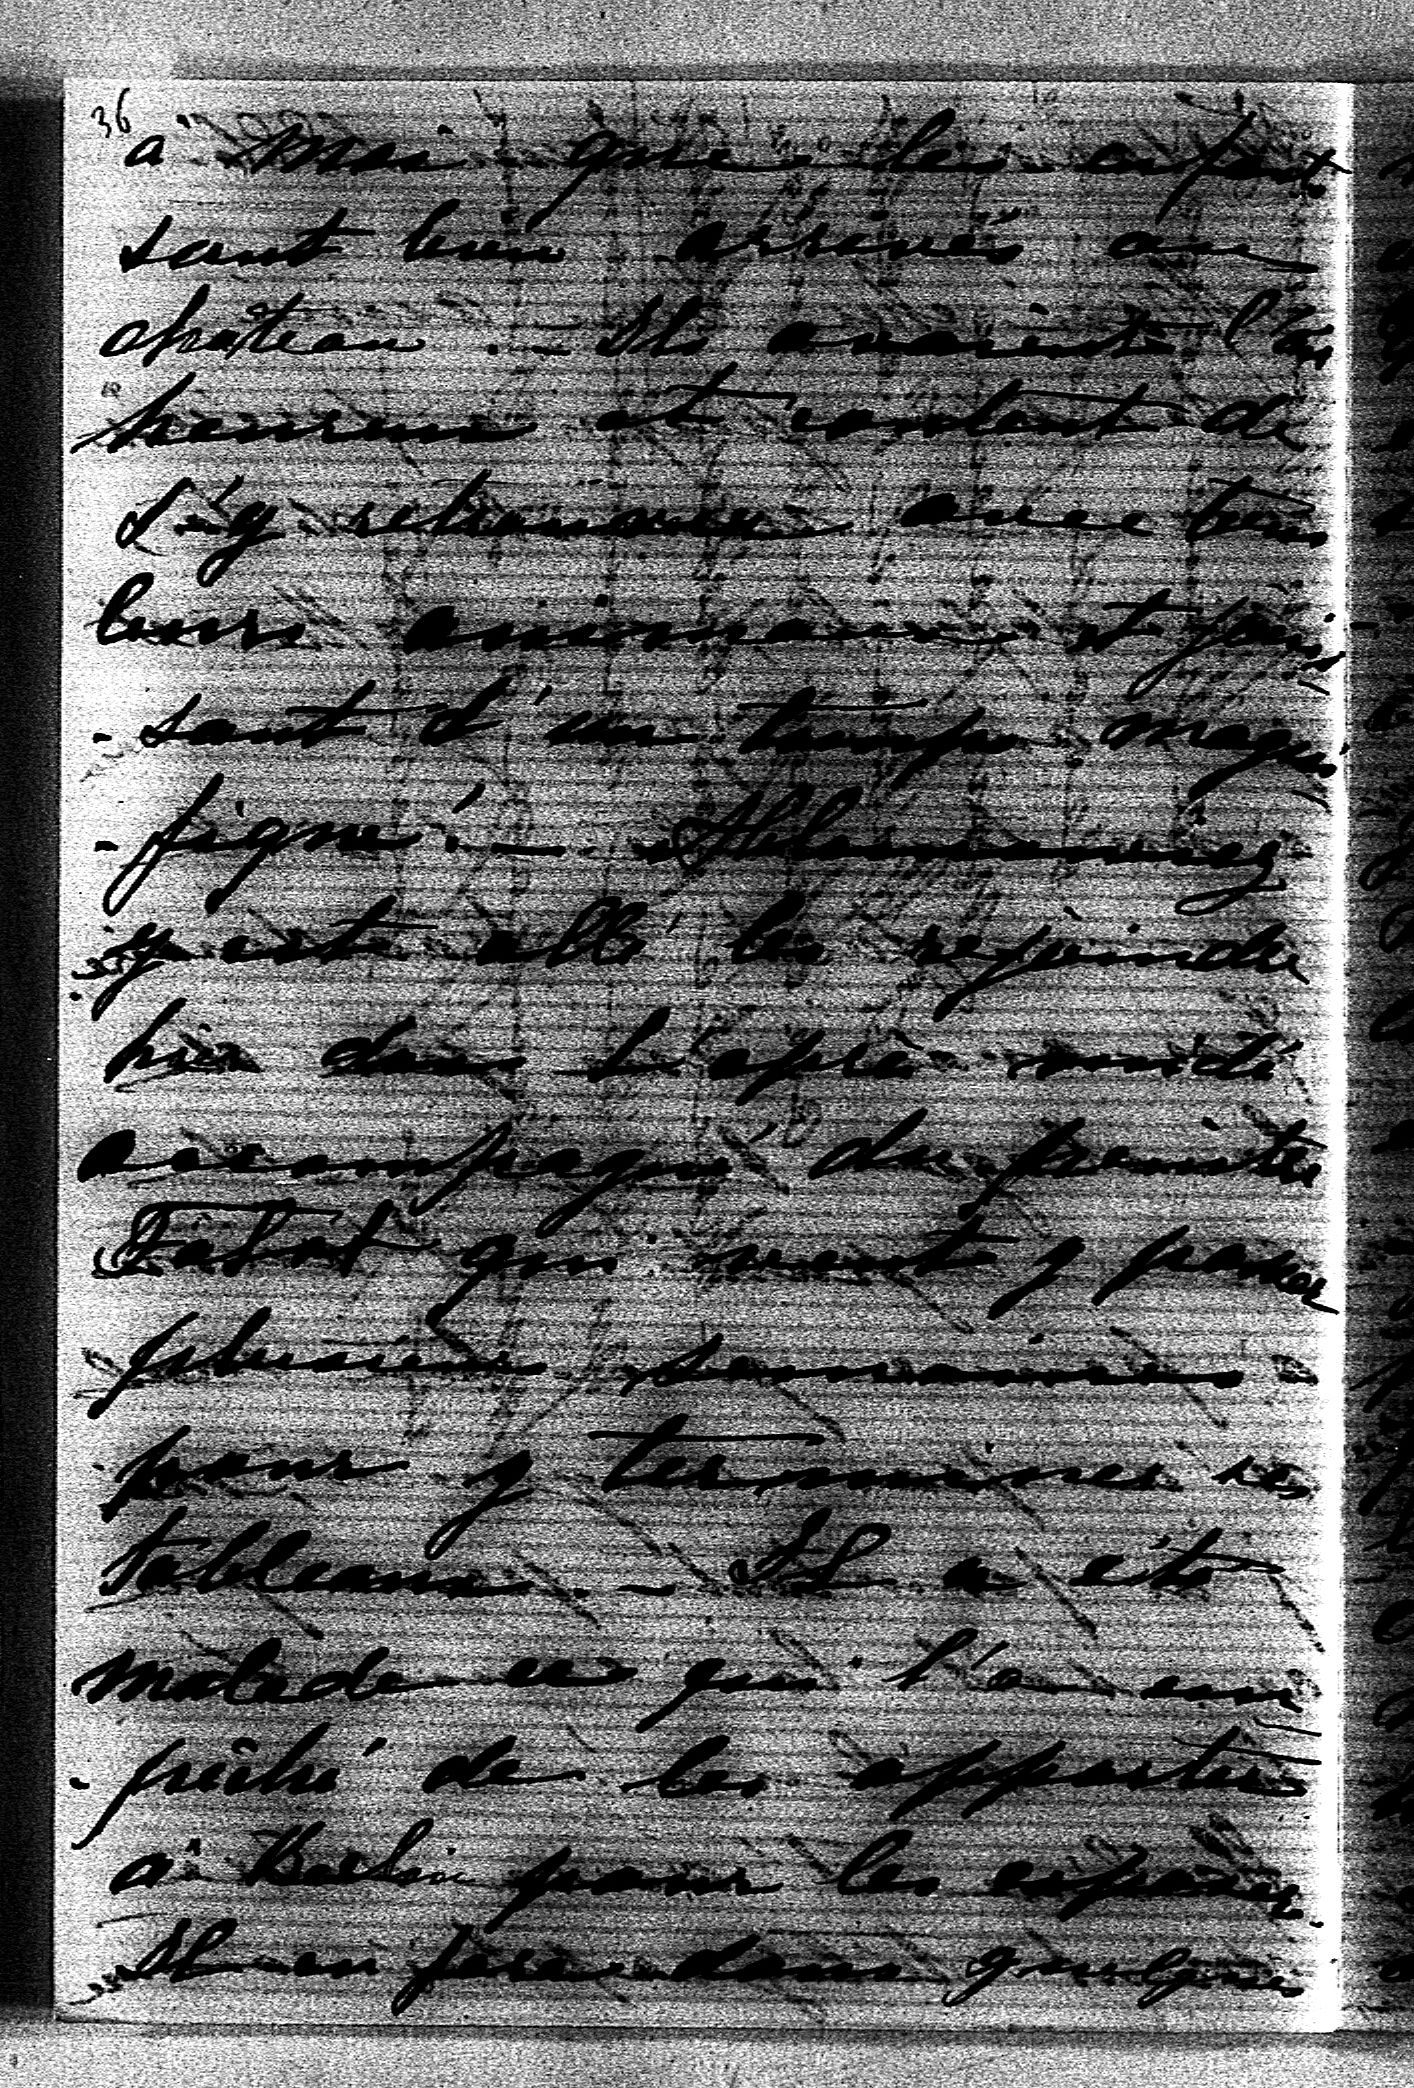 36
a Moi que les enfants
sont bien arrivés au
chateau. — Ils avaient l'air
heureux et content de
s'y retrouver avec tous
leurs animaux et jouis
-sant d'un temps magni
-fique. —
y est allé les rejoindre
hier dans l'après midi
accompagné du peintre
qui vient y passer
plusieurs semaines
pour y terminer ses
tableaux. — Il a été
malade ce qui l'a em
-pêché de les apporter
a Berlin pour les exposer.
Il en fera dans quelques